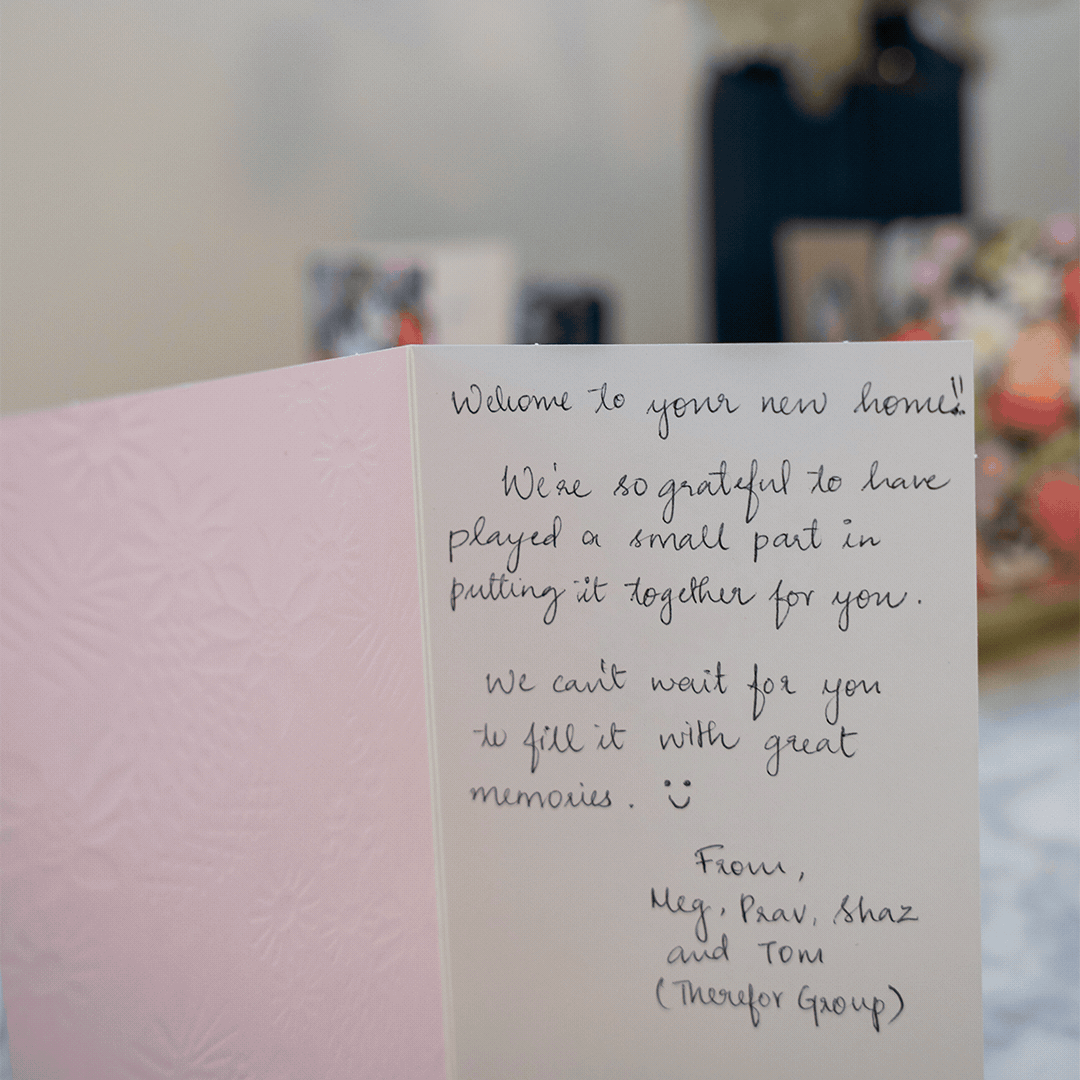 Welcome to your new home!!
We're so grateful to have
played a small part in
putting it together for you.
We can't wait for you
to fill it with great
memories. :)
From,
Meg, Prav, Shaz
and Tom
(Therefor Group)